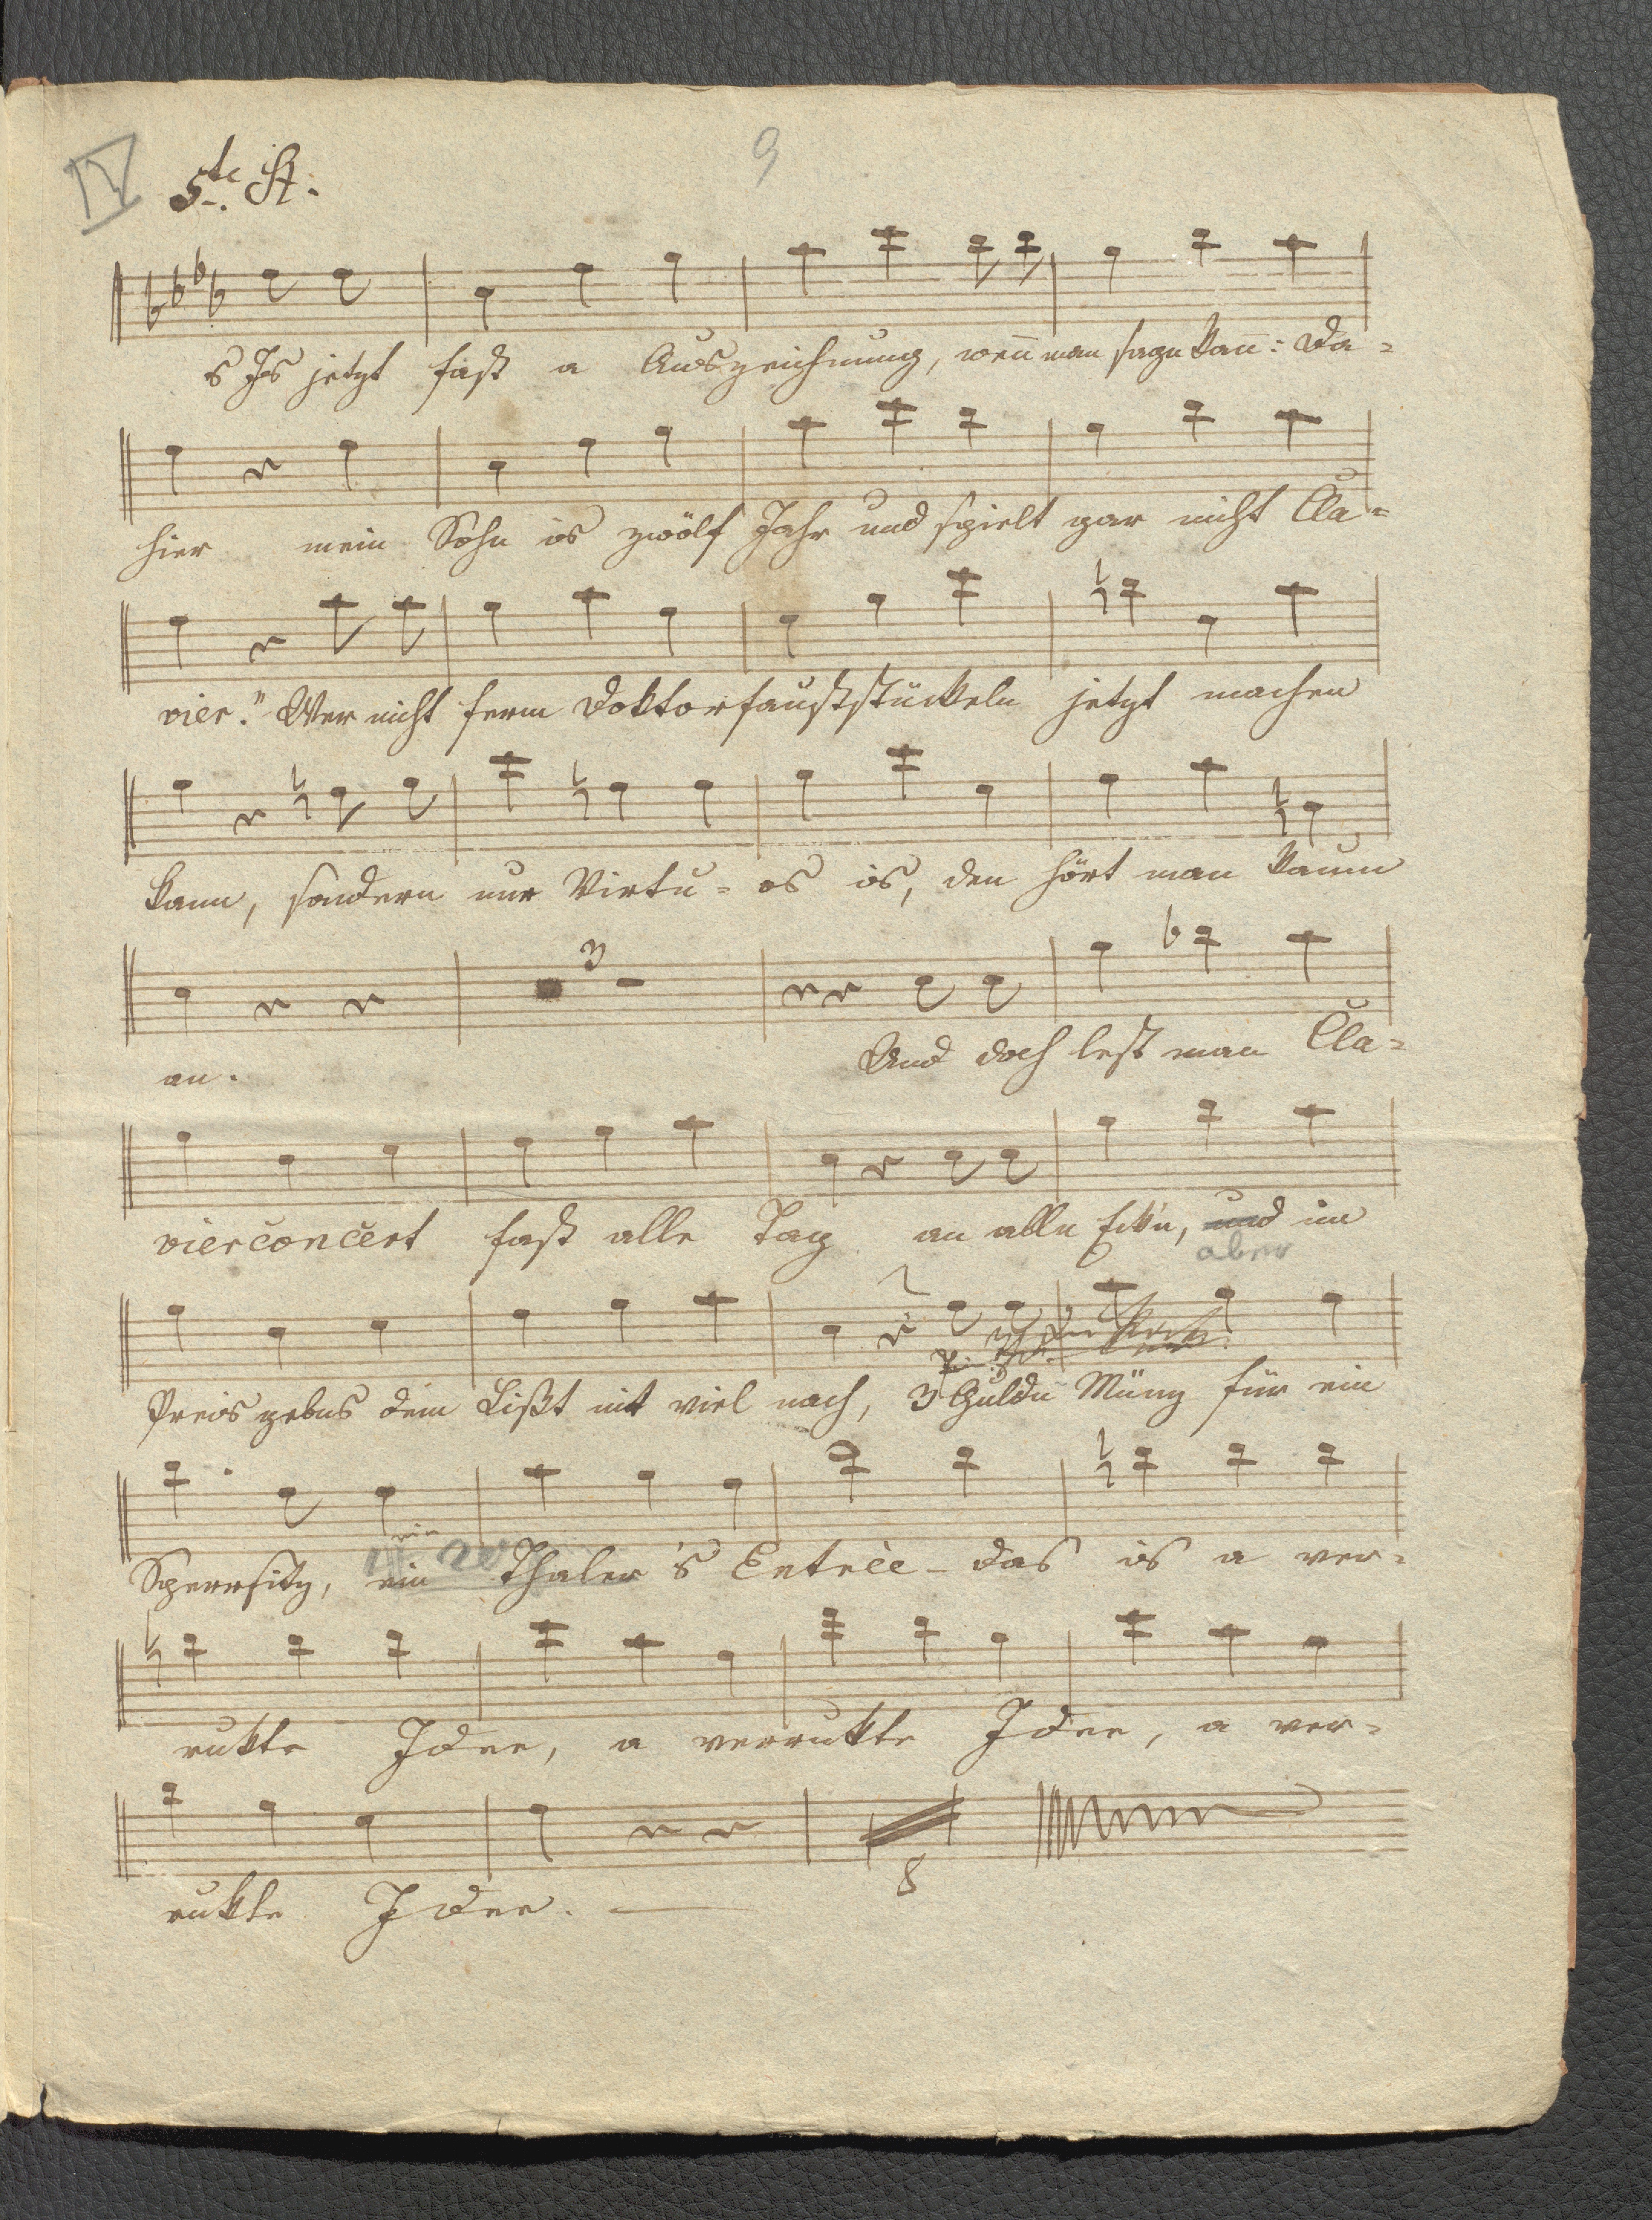 IV 5te St. 9
s Is jetzt fast a Auszeichnung, wen̄ man sagn kan̄: Da=
hier mein Sohn is zwölf Jahr und spielt gar nicht Cla=
vier." Wer nicht ferm Doktorfauststückeln jetzt machen
kann, sondern nur Virtu=os is, den hört man kaum
3
an. Und doch lest man Cla=
vierconcert fast alle Tag an alln Eck'n, und im
aber
Preis gebns dem Lißt nit viel nach, 3 Guldn Münz für ein
ein
Sperrsitz, ein Thaler 's Entrèe - das is a ver=
rukte Idee, a verrukte Idee, a ver=
8
rukte Idee. —